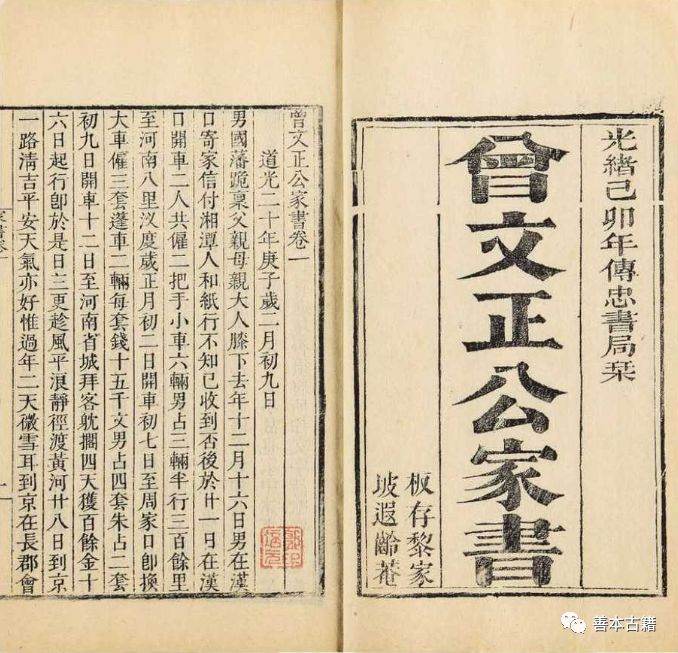 光緒己卯年傳忠書局栞
曾文正公家書
板存黎家
坡遐齡菴
曾文正公家書卷一
道光二十年庚子歲二月初九日
男國藩跪稟父親母親大人膝下去年十二月十六日男在漢
口寄家信付湘潭人和紙行不知已收到否後於廿一日在漢
口開車二人共僱二把手小車六輛男占三輛半行三百餘里
至河南八里汊度歲正月初二日開車初七日至周家口卽換
大車僱三套蓬車二輛每套錢十五千文男占四套朱占二套
初九日開車十二日至河南省城拜客躭擱四天獲百餘金十
六日起行卽於是日三更趁風平浪靜徑渡黃河廿八日到京
一路清吉平安天氣亦好惟過年二天微雪耳到京在長郡會
善本古籍